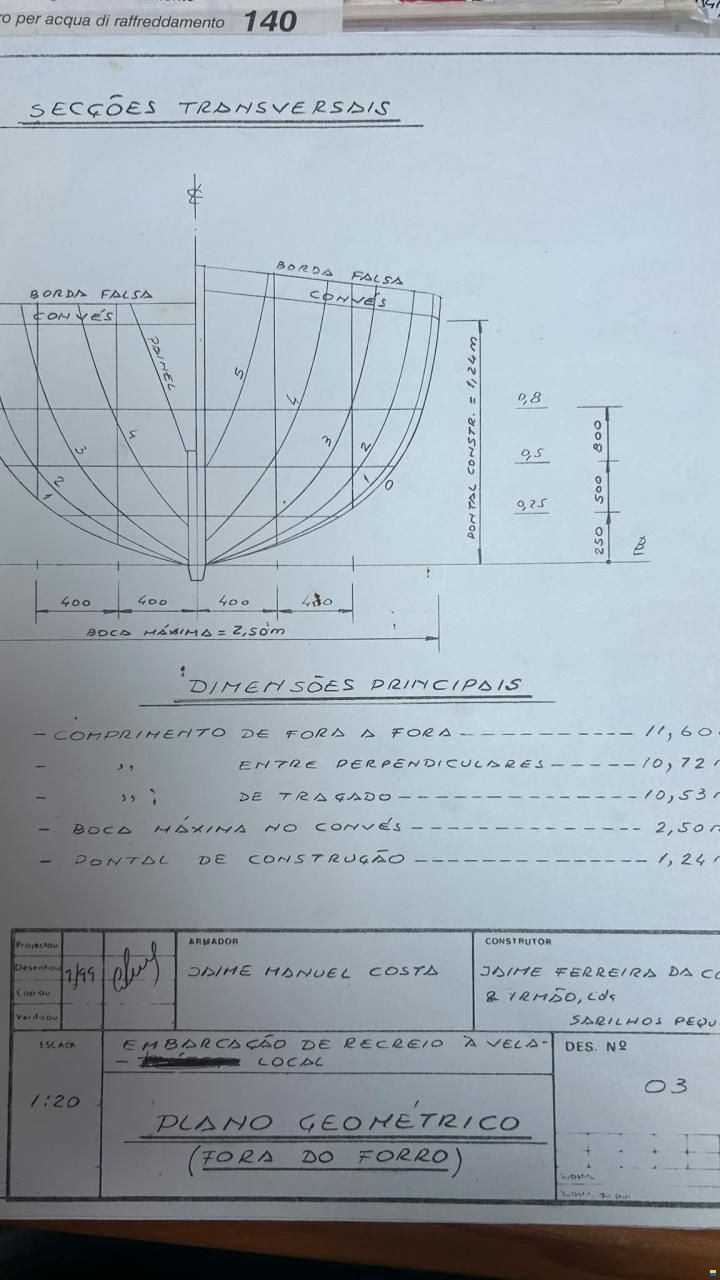 ro per acqua di raffreddamento 140
SECÇÕES TRANSVERSAIS
BORDA FALSA
CONVÉS
BORDA FALSA
CONVÉS
PAINEL
5
4
3
2
1
0
4
3
2
1
PONTAL CONSTR. = 1,24 m
0,8
0,5
0,25
800
500
250
400 400 400 400
BOCA MÁXIMA = 2,50 m
DIMENSÕES PRINCIPAIS
- COMPRIMENTO DE FORA A FORA ---------- 11,60
- ,, ENTRE PERPENDICULARES ----- 10,72
- ,, DE TRAÇADO -------------- 10,53
- BOCA MÁXIMA NO CONVÉS ------------- 2,50
- PONTAL DE CONSTRUÇÃO ------------- 1,24
Projectou
Desenhou 7/99
Copiou
Verificou
ARMADOR
JAIME MANUEL COSTA
CONSTRUTOR
JAIME FERREIRA DA CO
& IRMÃO, Lda
SARILHOS PEQU
ESCALA
1:20
EMBARCAÇÃO DE RECREIO À VELA-
- LOCAL
PLANO GEOMÉTRICO
(FORA DO FORRO)
DES. Nº
03